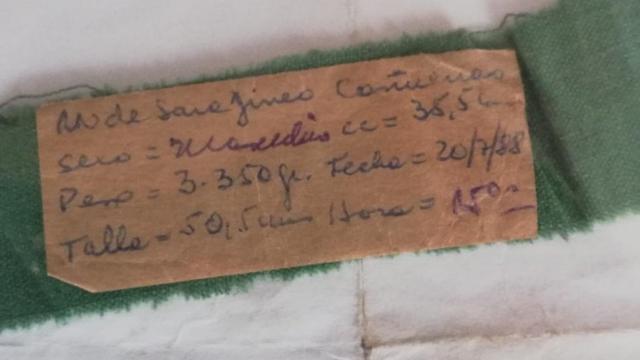 RN de Sara Gineo
Sexo = Masculino CC = 35,5 cm
Peso = 3.350 gr. Fecha = 20/7/88
Talla = 50,5 cms Hora =